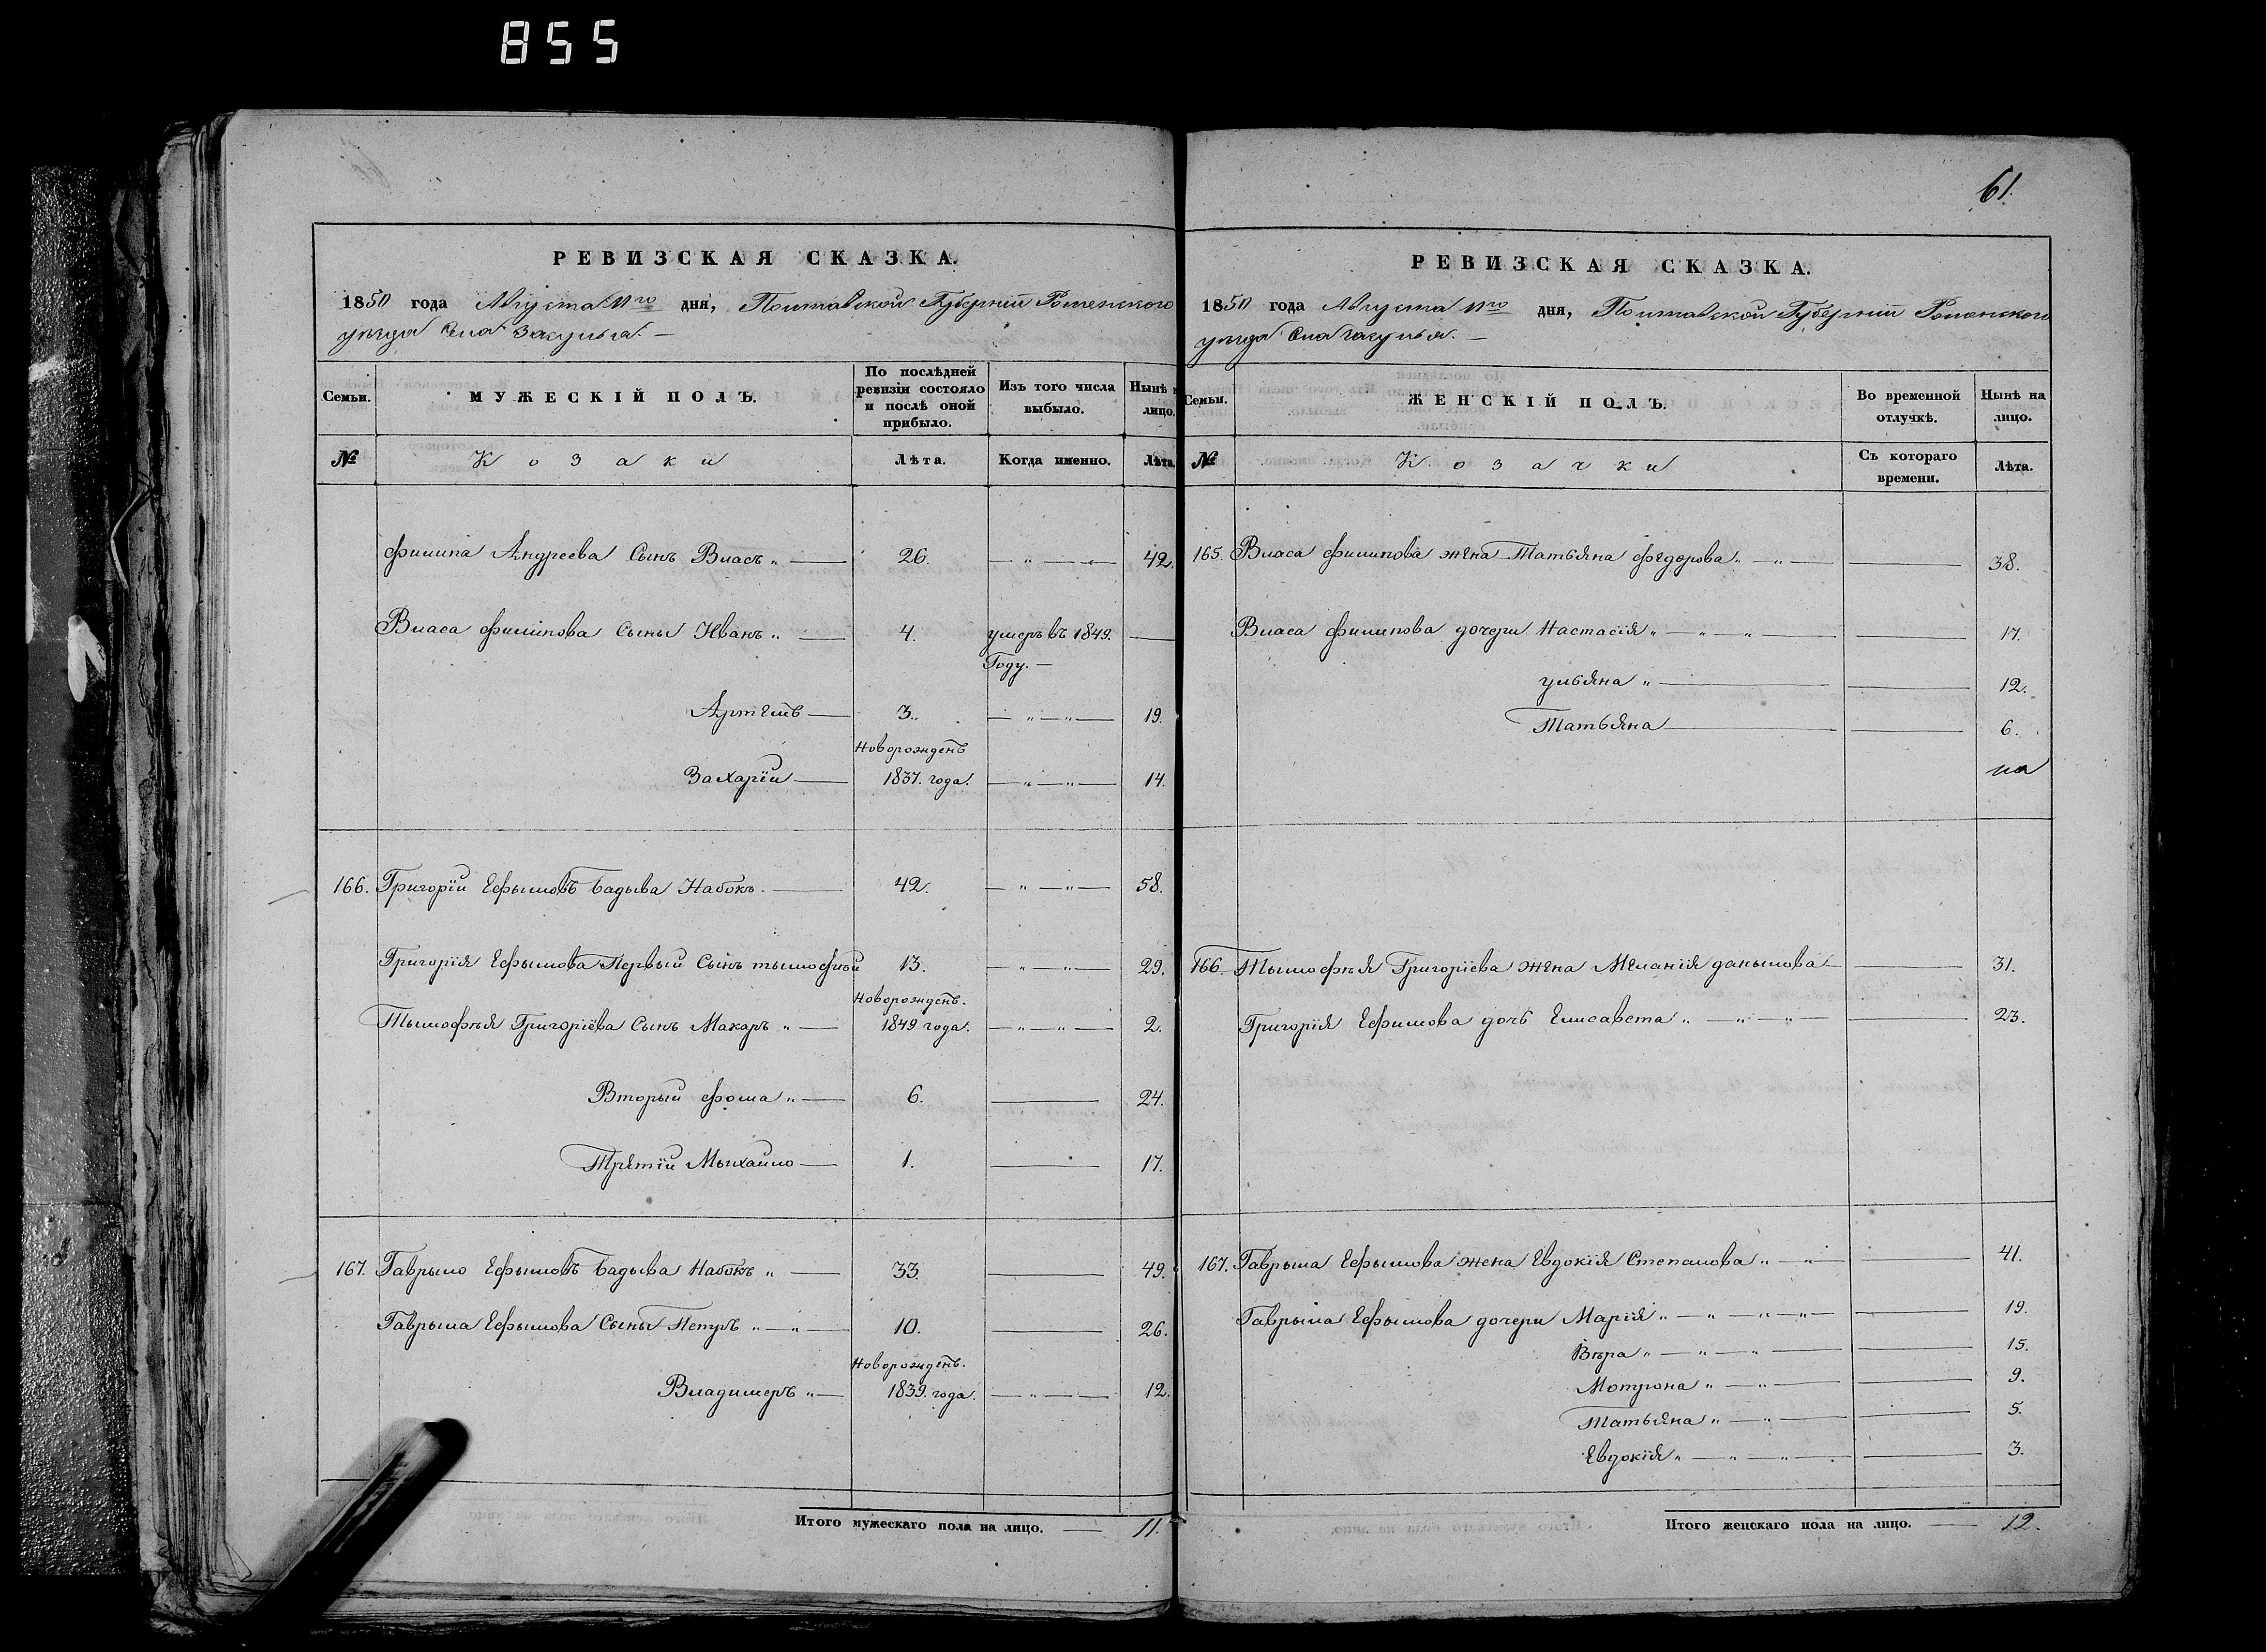 855
РЕВИЗСКАЯ СКАЗКА.
1850 года Августа 11го дня, Полтавской Губернїи Роменского
уѣзда Села Засулья. —
Семьи. МУЖЕСКІЙ ПОЛЪ. По послѣдней ревизіи состояло и послѣ оной прибыло. Изъ того числа выбыло. Нынѣ н лицо.
№ Козаки Лѣта. Когда именно. Лѣта.
Филипа Андреева Сынъ Власъ „ — 26. — „ — „ — 42.
Власа Филипова Сыны Иванъ „ — 4. умеръ въ 1849. —
Году. —
Артемъ — 3. — „ — „ — 19.
Новорожденъ
Захарїй — 1837. года. — „ — „ — 14.
166. Григорїй Ефымовъ Бадыва Набокъ. — 42. — „ — „ — 58.
Григорїя Ефымова Первый Сынъ Тымофѣй 13. — „ — „ — 29.
Новорожденъ.
Тымофѣя Григорїева Сынъ Макаръ „ — 1849 года. — „ — „ — 2.
Вторый Фома „ — 6. — 24.
Третїй Мыхайло — 1. — 17.
167. Гаврыло Ефымовъ Бадыва Набокъ „ — 33. — 49.
Гаврыла Ефымова Сыны Петръ „ — „ — 10. — 26.
Новорожденъ.
Владимеръ „ — 1839. года. — „ — — 12.
Итого мужескаго пола на лицо. — 11.
61.
РЕВИЗСКАЯ СКАЗКА.
1850 года Августа 11го дня, Полтавской Губернїи Роменского
уѣзда Села Засулья. —
Семьи. ЖЕНСКІЙ ПОЛЪ. Во временной отлучкѣ. Нынѣ на лицо.
№ Козачки Съ котораго времени. Лѣта.
165. Власа Филипова жена Татьяна Федорова „ — „ — — 38.
Власа Филипова дочери Настасїя „ — „ — „ — — 17.
Ульяна „ — — 12.
Татьяна — — 6.
166. Тымофѣя Григорїева жена Меланїя Данылова — — 31.
Григорїя Ефимова дочь Елисавета „ — „ — „ — — 23.
167. Гаврыла Ефымова жена Евдокїя Степанова „ — „ — — 41.
Гаврыла Ефымова дочери Марїя „ — „ — „ — „ — — 19.
Вѣра „ — „ — „ — — 15.
Мотрона „ — „ — — 9.
Татьяна „ — „ — — 5.
Евдокїя „ — „ — „ — — 3.
Итого женскаго пола на лицо. — 12.